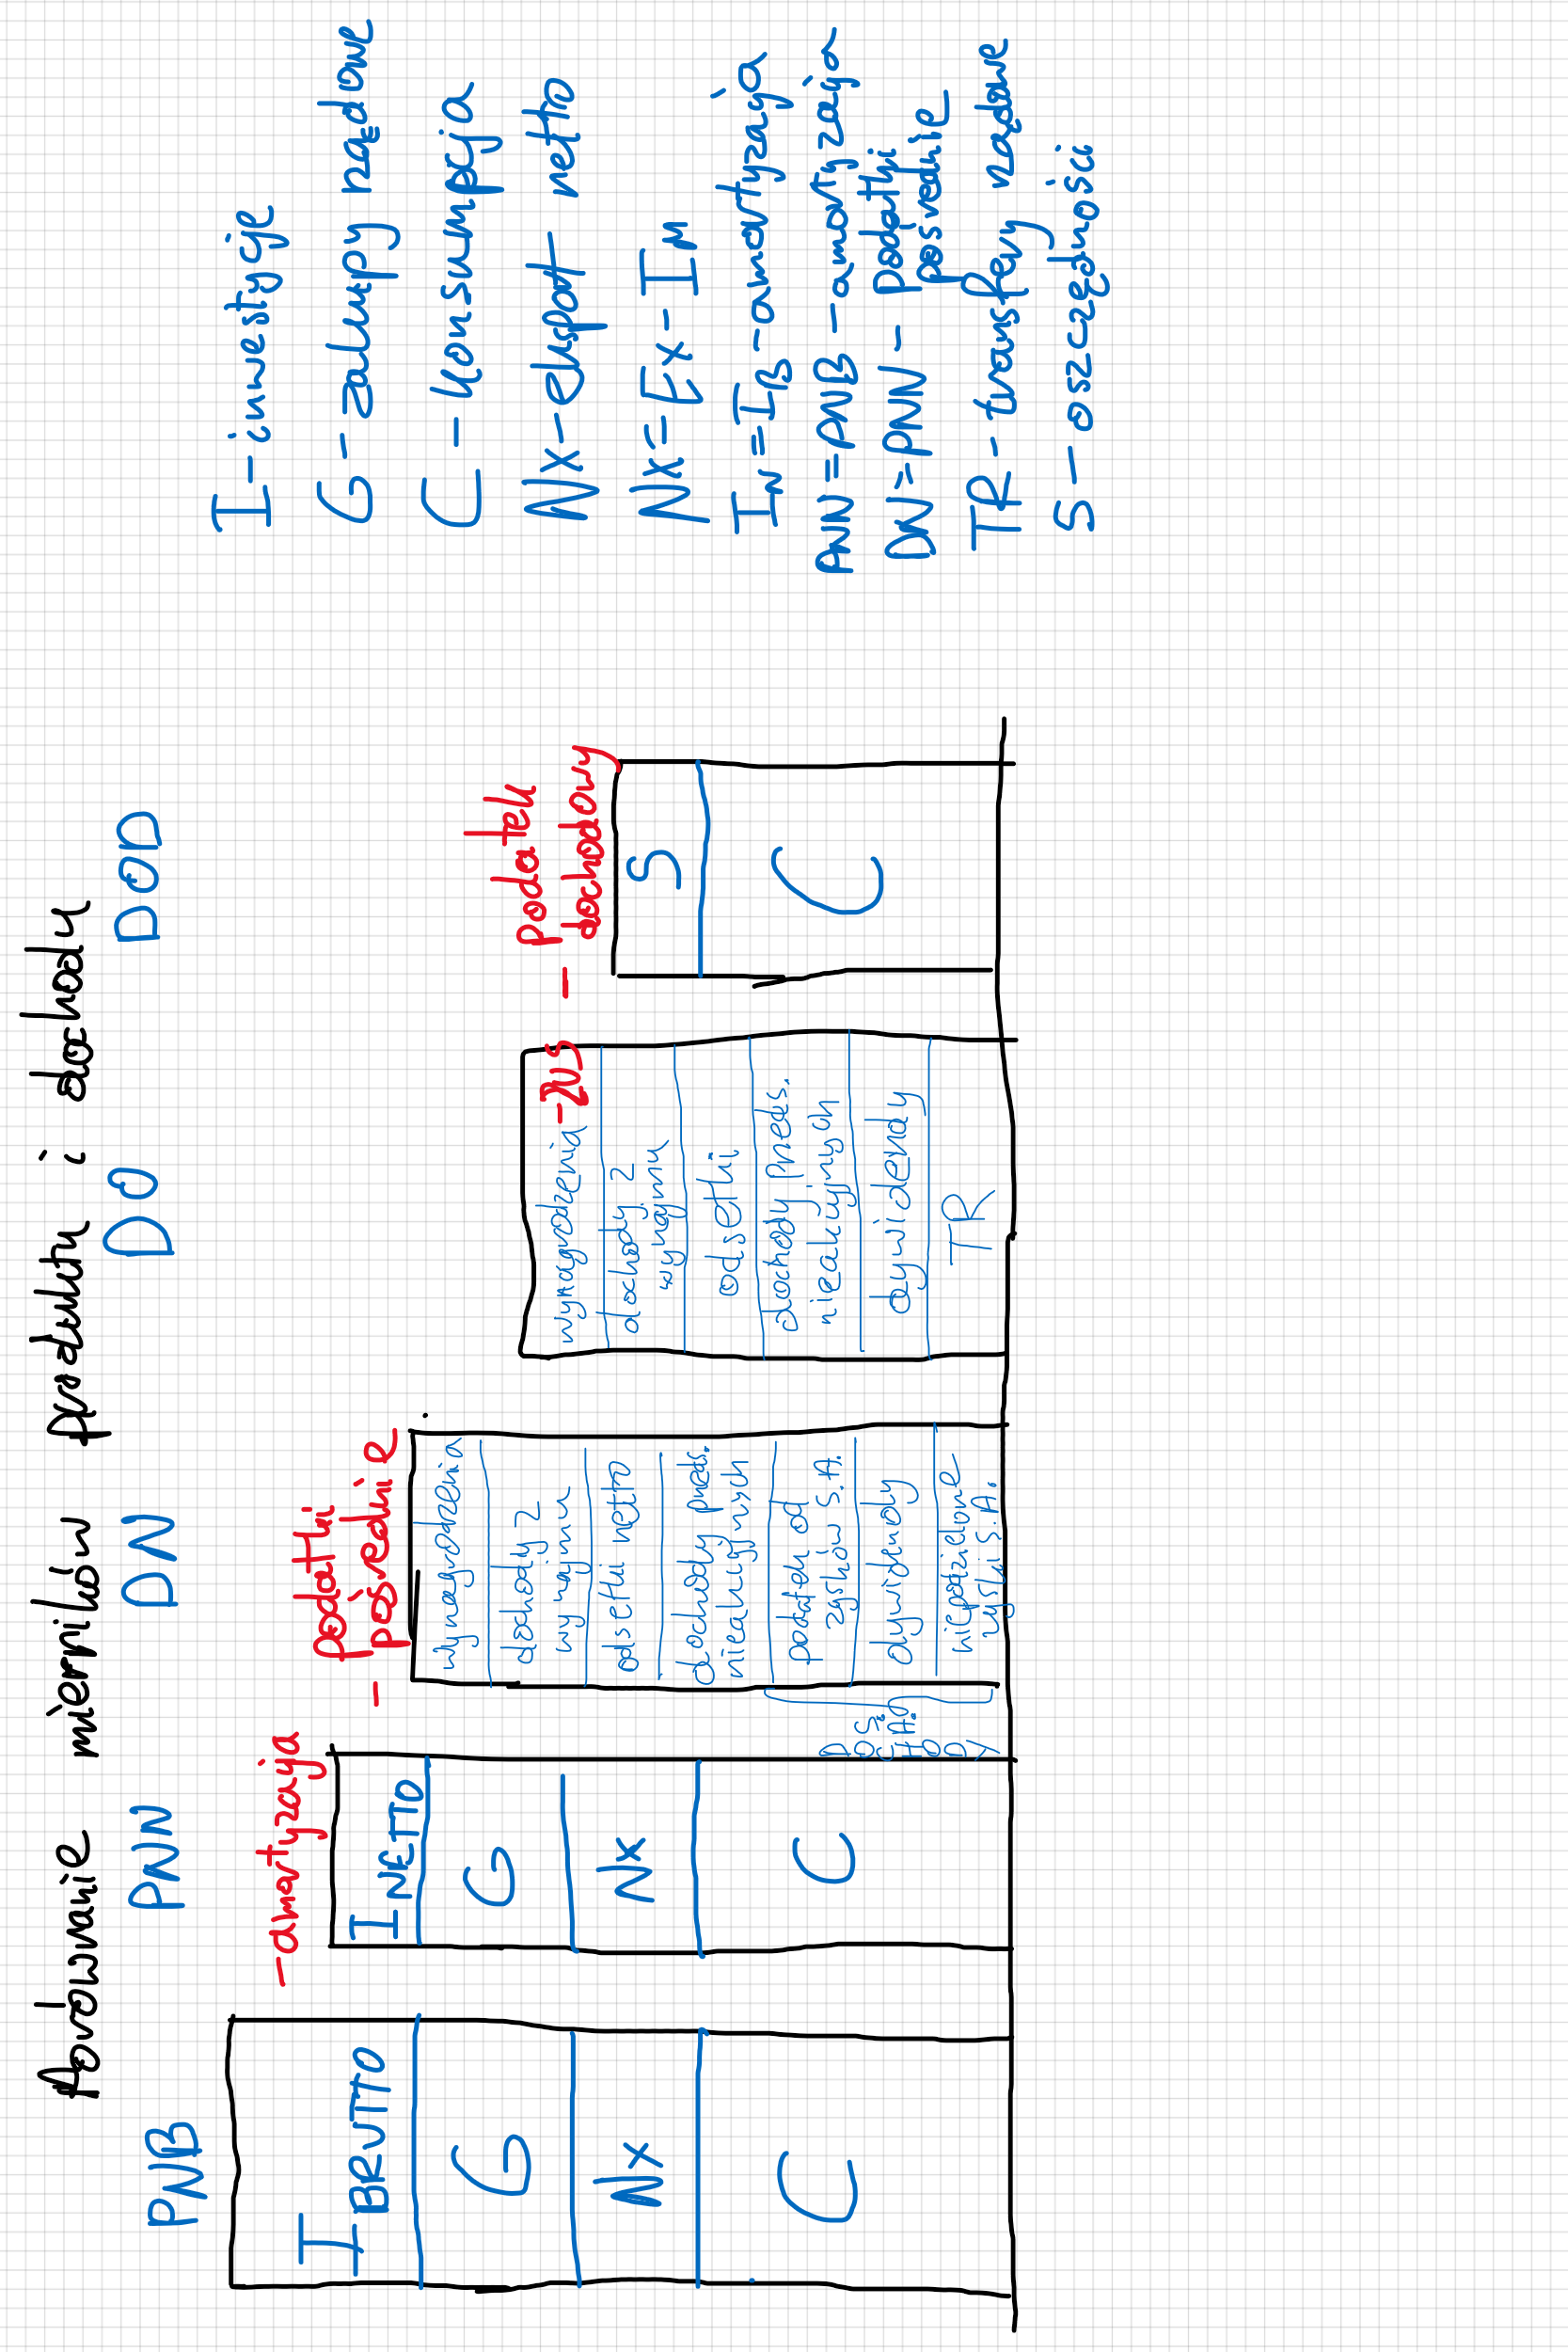 Porównanie mierników produktu i dochody
PNB
PNN
DN
DO
DOD
I BRUTTO
G
Nx
C
-amortyzacja
I NETTO
G
Nx
C
- podatki
pośrednie
wynagrodzenia
dochody z
wynajmu
odsetki netto
dochody przeds.
nieakcyjnych
podatek od
zysków S.A.
dywidendy
niepodzielone
zyski S.A.
DOCHODY
S.A.
wynagrodzenia -ZUS
dochody z
wynajmu
odsetki
dochody przeds.
nieakcyjnych
dywidendy
TR
- podatek
dochodowy
S
C
I - inwestycje
G - zakupy rządowe
C - konsumpcja
Nx - eksport netto
Nx = Ex - Im
IN = IB - amortyzacja
PNN = PNB - amortyzacja
DN = PNN - podatki
pośrednie
TR - transfery rządowe
S - oszczędności